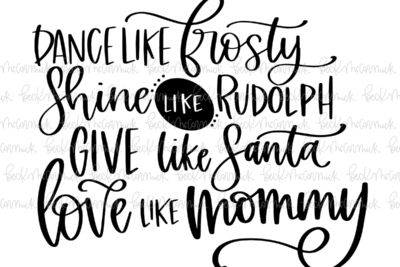 DANCE LIKE frosty
Shine LIKE RUDOLPH
GIVE like Santa
love LIKE mommy